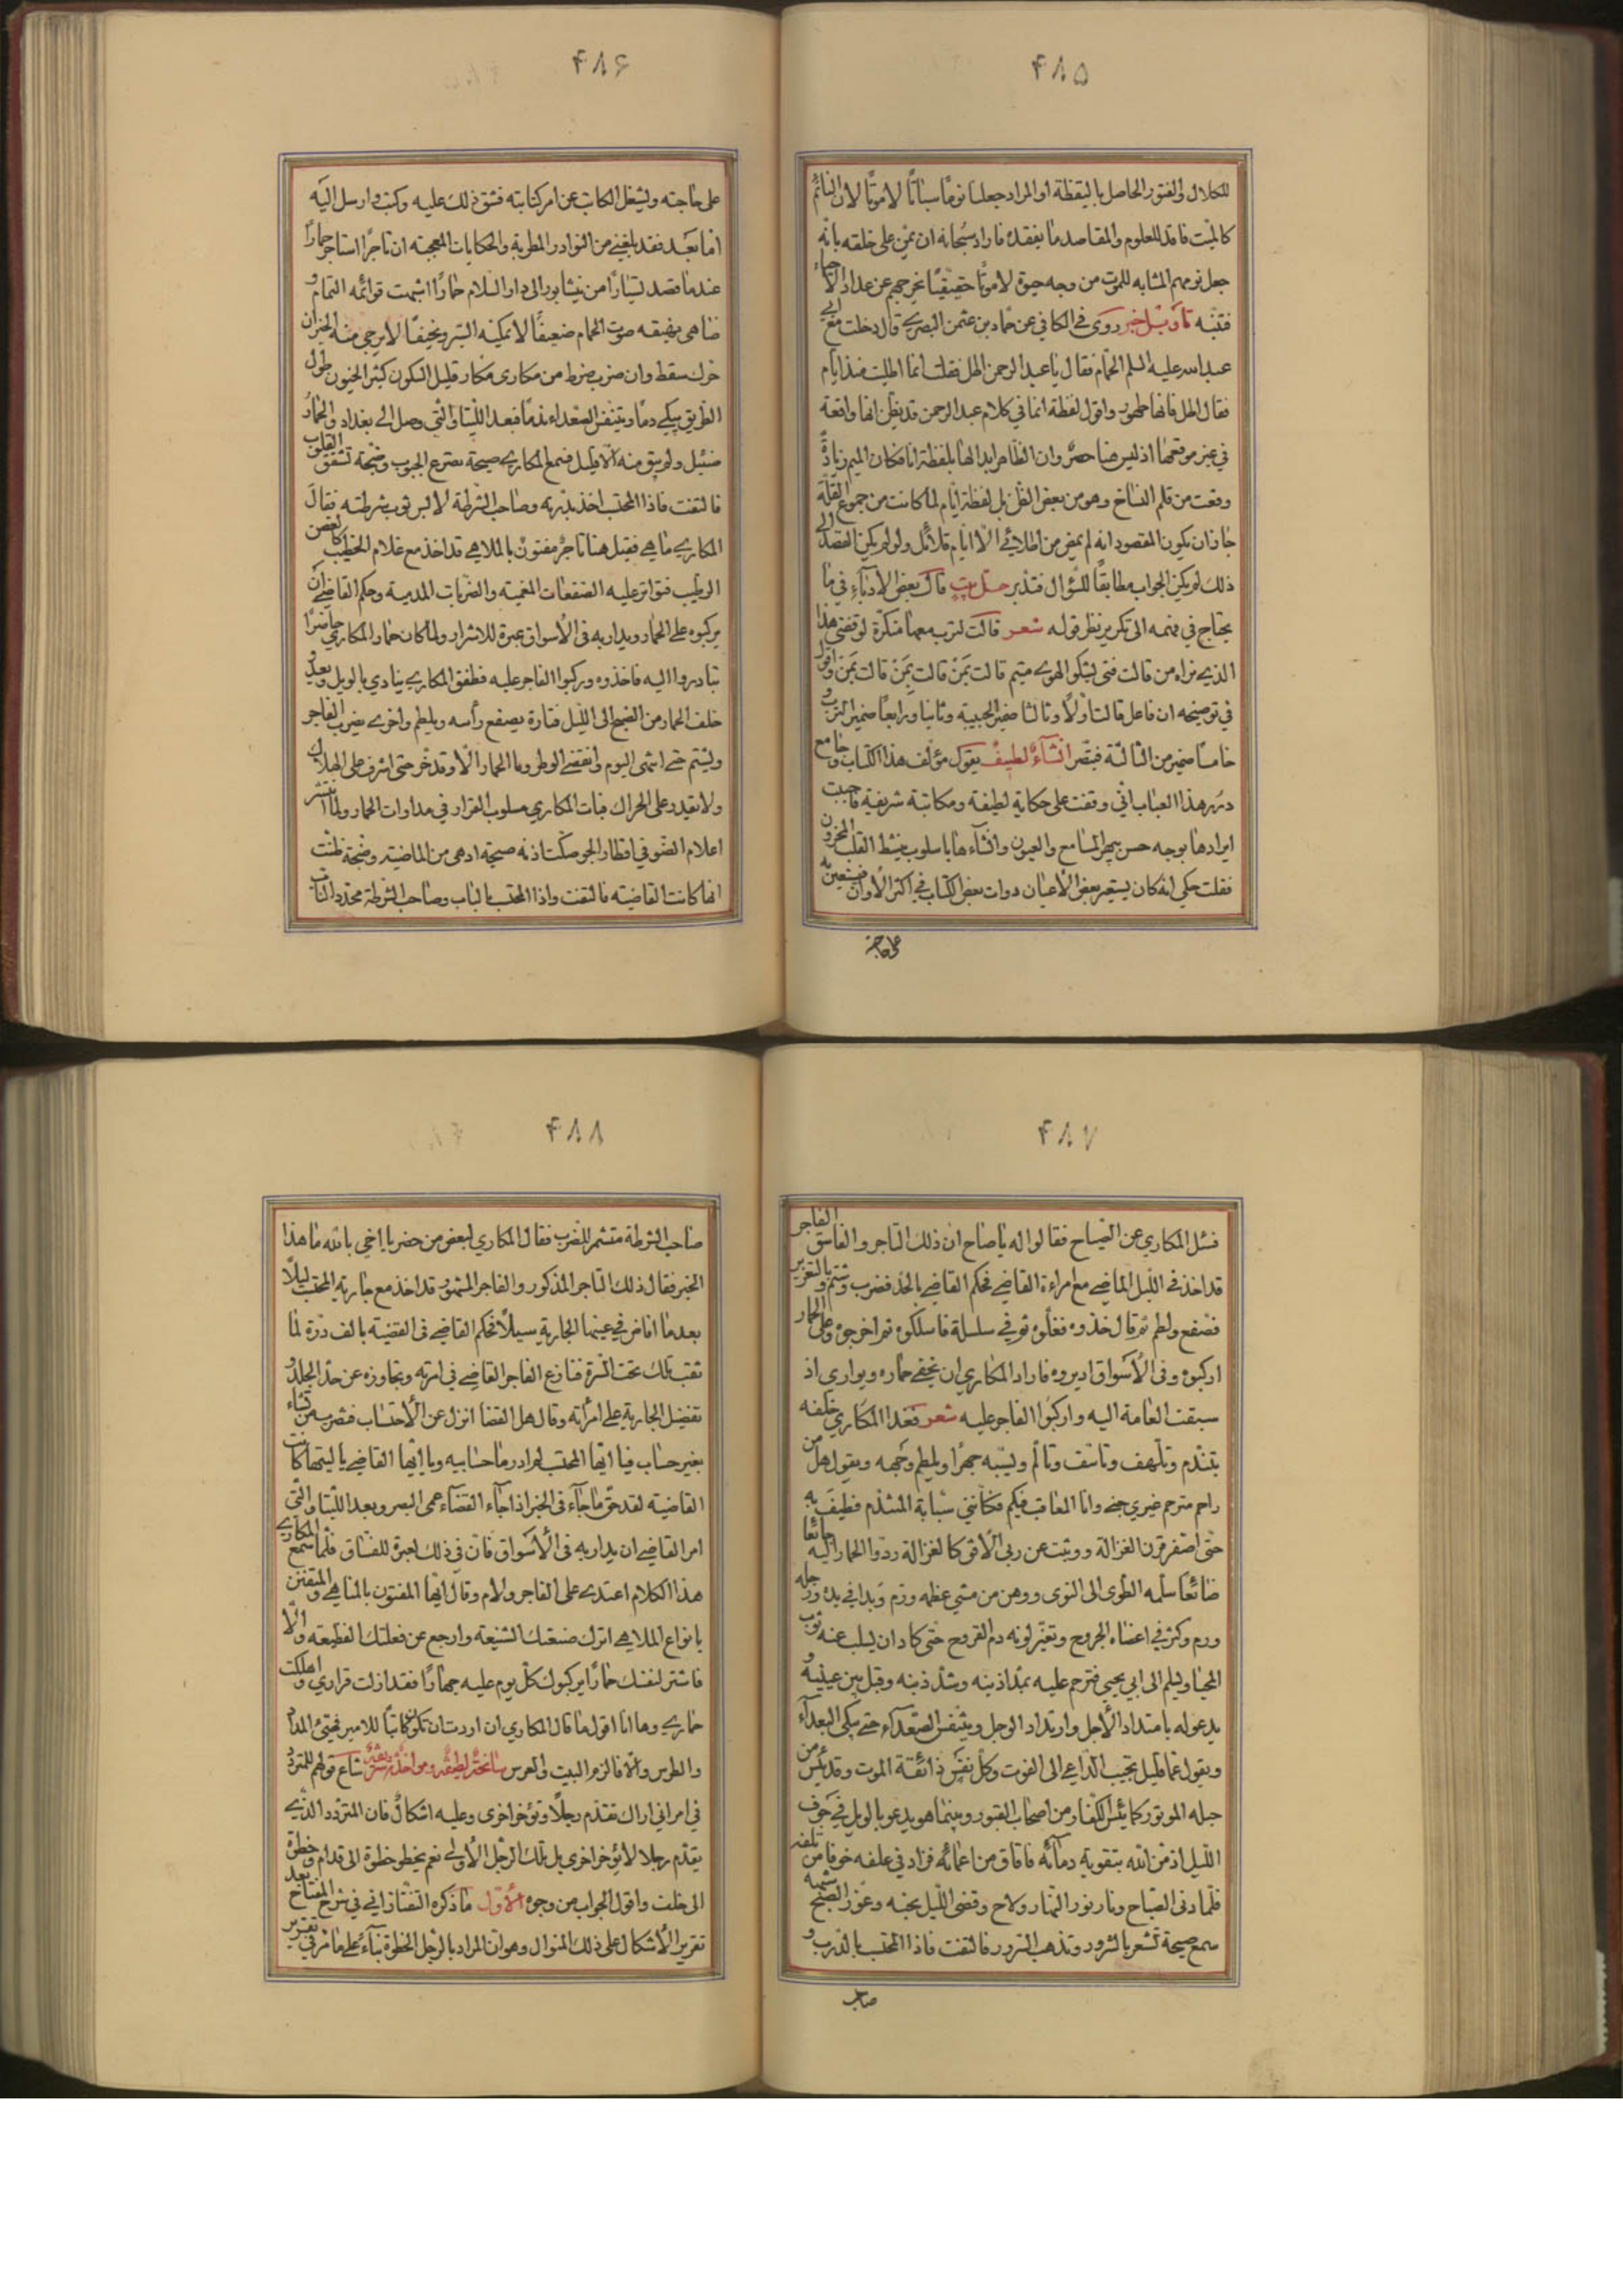 ۴۸۵
للكلال والفتور الحاصل باليقظة او المراد جعلنا نومًا سباتًا لا موتًا لان النائم
كالميت فاقد للعلوم والمقاصد ما يفقده فاراد سبحانه ان يمن على خلقه بانه
جعل نومهم المشابه للموت من وجه حيوة لا موتًا حقيقيًا يخرجهم عن عداد الاحياء
فتنبه تأويل خبر روى في الكافي عن حماد بن عثمن البصري قال دخلت مع ابي
عبد الله عليه السلم الحمام فقال يا عبد الرحمن اطل فقلت انما اطليت منذ ايام
فقال اطل فانها طهور واقول لفظة انما في كلام عبد الرحمن قد يظن انها واقعة
في غير موقعها اذ ليس هنا حصر وان الظاهر ابدالها بلفظة انا فكان الميم زيادة
وقعت من قلم النساخ وهو من بعض الظن بل لفظة ايام لما كانت من جموع القلة
جاز ان يكون المقصود انه لم يمض من اطلائي الا ايام قلائل ولو لم يكن القصد الى
ذلك لم يكن الجواب مطابقًا للسؤال فتدبر حل بيت قال بعض الادباء في ما
يحتاج في فهمه الى تكرير نظر قوله شعر قالت لترب معها منكرة لوقفتي هذا
الذي نراه من قالت فتى يشكو الهوى متيم قالت بمن قالت بمن قالت بمن واقول
في توضيحه ان فاعل قالت اولًا وثالثًا ضمير الحبيبة وثانيا ورابعًا ضمير الترب و
خامسًا ضمير من الثالثة فتبصر انشاء لطيف يقول مؤلف هذا الكتاب وجامع
درر هذا العباب اني وقفت على حكاية لطيفة ومكاتبة شريفة فاحببت
ايرادها بوجه حسن يبهر المسامع والعيون وانشاءها باسلوب ينشط القلب المحزون
فقلت حكي انه كان يستعير بعض الاعيان دوات بعض الكتاب في اكثر الاوان فيستعين به
على حاجته
۴۸۶
على حاجته ويشغل الكاتب عن امر كتابته فشق ذلك عليه وكتب وارسل اليه
اما بعد فقد بلغني من النوادر المطربة والحكايات المعجبة ان تاجرًا استاجر حمارًا
عندما قصد تسيارًا من نيشابور الى دار السلام حمارًا اشبهت قوائمه الثمام و
ضاهى نهيقه صوت الحمام ضعيفًا لا يمكنه السير ونحيفًا لا يرجى منه الخير ان
حرك سقط وان ضرب ضرط من مكارى مكار قليل السكون كثير الجنون طول
الطريق يبكي دمًا ويتنفس الصعداء ندمًا فبعد اللتيا والتي وصل الى بغداد والحمار
ضئيل ولم يبق منه الا قليل فسمع المكاري صيحة تصرع الجيوب وضجة تشقق القلوب
فالتفت فاذا المحتسب اخذ بدرته وصاحب الشرطة لابس ثوب شرطته فقال
المكاري ما هي فقيل هنا تاجر مفتون بالملاهي قد اخذ مع غلام الخطيب كالغصن
الرطيب فتواتر عليه الصفعات المغمية والضربات المدمية وحكم القاضي ان
يركبوه على الحمار ويدار به في الاسواق عبرة للاشرار ولما كان حمار المكاري حاضرًا
تبادروا اليه فاخذوه وركبوا الفاجر عليه فطفق المكاري ينادي بالويل ويعدو
خلف الحمار من الصبح الى الليل فتارة يصفع رأسه ويلطم واخرى يضرب الفاجر
ويشتم حتى انتهى اليوم وانقضى الوطر وما الحمار الا وقد خر حتى اشرف على الهلاك
ولا يقدر على الحراك فبات المكاري مسلوب القرار في مداوات الحمار ولما انتشر
اعلام الضوء في اقطار الجو صكت اذنه صيحة ادهى من الماضية وضجة ظنت
انها كانت القاضية فالتفت واذا المحتسب بالباب وصاحب الشرطة محدد الناب
۴۸۷
فسئل المكاري عن الصياح فقالوا له يا صاح ان ذلك التاجر والفاسق الفاجر
قد اخذ في الليل الماضي مع امراءة القاضي فحكم القاضي بالحد فضرب وشتم وبالتعزير
فصفع ولطم ثم قال خذوه فغلوه ثم في سلسلة فاسلكوه ثم اخرجوه وعلى الحمار
اركبوه وفي الاسواق اديروه فاراد المكاري ان يخفي حماره ويوارى اذ
سبقت العامة اليه واركبوا الفاجر عليه شعر فغدا المكاري خلفه
يتندم وتلهف وتاسف وتالم ويسبه جهرًا ويلطم وجهه ويقول هل من
راحم مترحم غيري جنى وانا المعاقب فيكم فكانني سبابة المتندم فطيف به
حتى اصفر قرن الغزالة ووثبت عن ربى الافق كالغزالة ردوا الحمار اليه جائعًا
ضائعًا سلمه الطوى الى النوى ووهن من مشي عظمه ورم وبدا في يده ورجله
ورم وكثر في اعضائه الجروح وتغير لونه دم القروح حتى كاد ان يسلب عنه ثوب
المحيا ويسلم الى ابي يحيى فترحم عليه بمد اذنيه وشد ذنبه وقبل بين عينيه و
يدعو له بامتداد الاجل وارتداد الوجل ويتنفس الصعداء حتى بكى البعداء
ويقول عما قليل يجيب الداعي الى الفوت وكل نفس ذائقة الموت وقد يئس من
حبله الموتور كما يئس الكفار من اصحاب القبور وبينما هو يدعو بالويل في جوف
الليل اذ من الله بتقوية دمائه فافاق من اغمائه فزاد في علفه خوفًا من تلفه
فلما دنى الصباح ونار نور النهار ولاح وقضى الليل نحبه وغور الصبح
سمع صيحة تشعر بالشرور وتذهب السرور فالتفت فاذا المحتسب بالدرب و
صاحب
۴۸۸
صاحب الشرطة متشمر للضرب فقال المكاري لبعض من حضر يا اخي بالله ما هذا
الخبر فقال ذلك التاجر المذكور والفاجر المشهور قد اخذ مع جارية المحتسب ليلًا
بعدما افاض في عينها الجارية سيلًا فحكم القاضي في القضية بالف درة لما
ثقب تلك تحت السرة فنازع الفاجر القاضي في امرته وتجاوزه عن حد الجلد و
تفضيل الجارية على امرأته وقال هل القضا انزل عن الاحتساب فتضرب من تشاء
بغير حساب فيا ايها المحتسب لم ادر ما حسابيه ويا ايها القاضي يا ليتها كانت
القاضية لقد حق ما جاء في الخبر اذا جاء القضاء عمى البصر وبعد اللتيا والتي
امر القاضي ان يدار به في الاسواق فان في ذلك لعبرة للفساق فلما سمع المكاري
هذا الكلام اعتدى على الفاجر ولام وقال ايها المفتون بالمناهي والمتفنن
بانواع الملاهي اترك صنعتك الشنيعة وارجع عن فعلتك الفظيعة والا
فاشتر لنفسك حمارًا يركبوك كل يوم عليه جهارًا فقد ازلت قراري واهلكت
حماري وها انا اقول ما قال المكاري ان اردت ان تكون كاتبًا للامير فهيئ المداد
والطرس والا فالزم البيت والعرس سانحة لطيفة ومواخذة شاع قولهم للمتردد
في امر اني اراك تقدم رجلًا وتؤخر اخرى وعليه اشكال فان المتردد الذي
يقدم رجلا لا يؤخر اخرى بل تلك الرجل الاولى نعم يخطو خطوة الى قدام وخطوة
الى خلف واقول الجواب من وجوه الاول ما ذكره التفتازاني في شرح المفتاح بعد
تقرير الاشكال على ذلك المنوال وهو ان المراد بالرجل الخطوة بناء على ما مر في تقرير